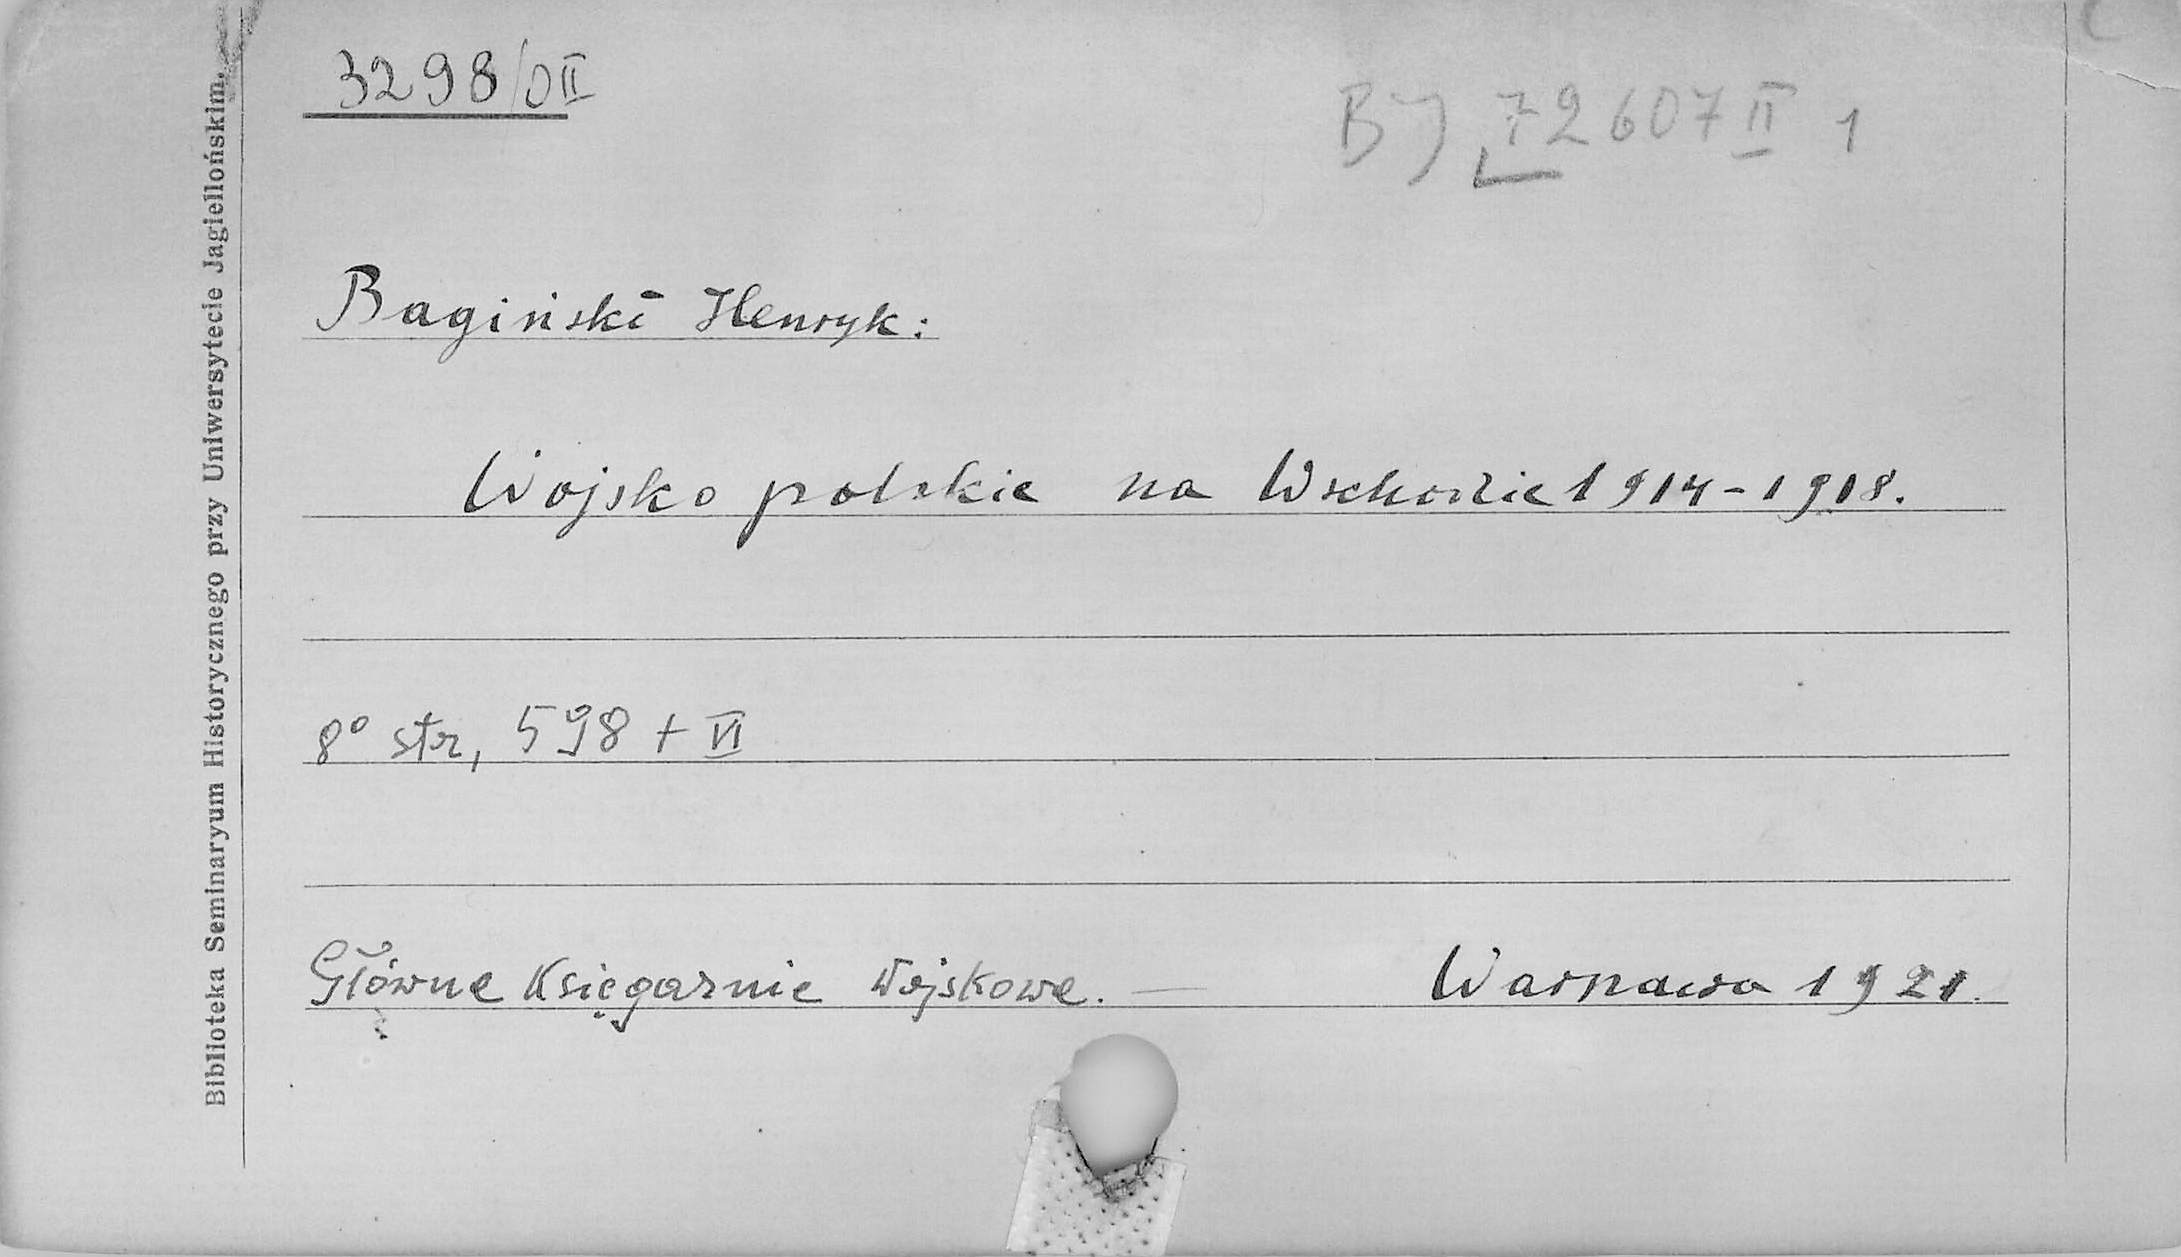 3298/DII
BJ 72607 II 1
Bagiński Henryk:
Wojsko polskie na Wschodzie 1914-1918.
8° str, 598 + VI
Główne Księgarnie Wojskowe. — Warszawa 1921.
Biblioteka Seminaryum Historycznego przy Uniwersytecie Jagiellońskim.